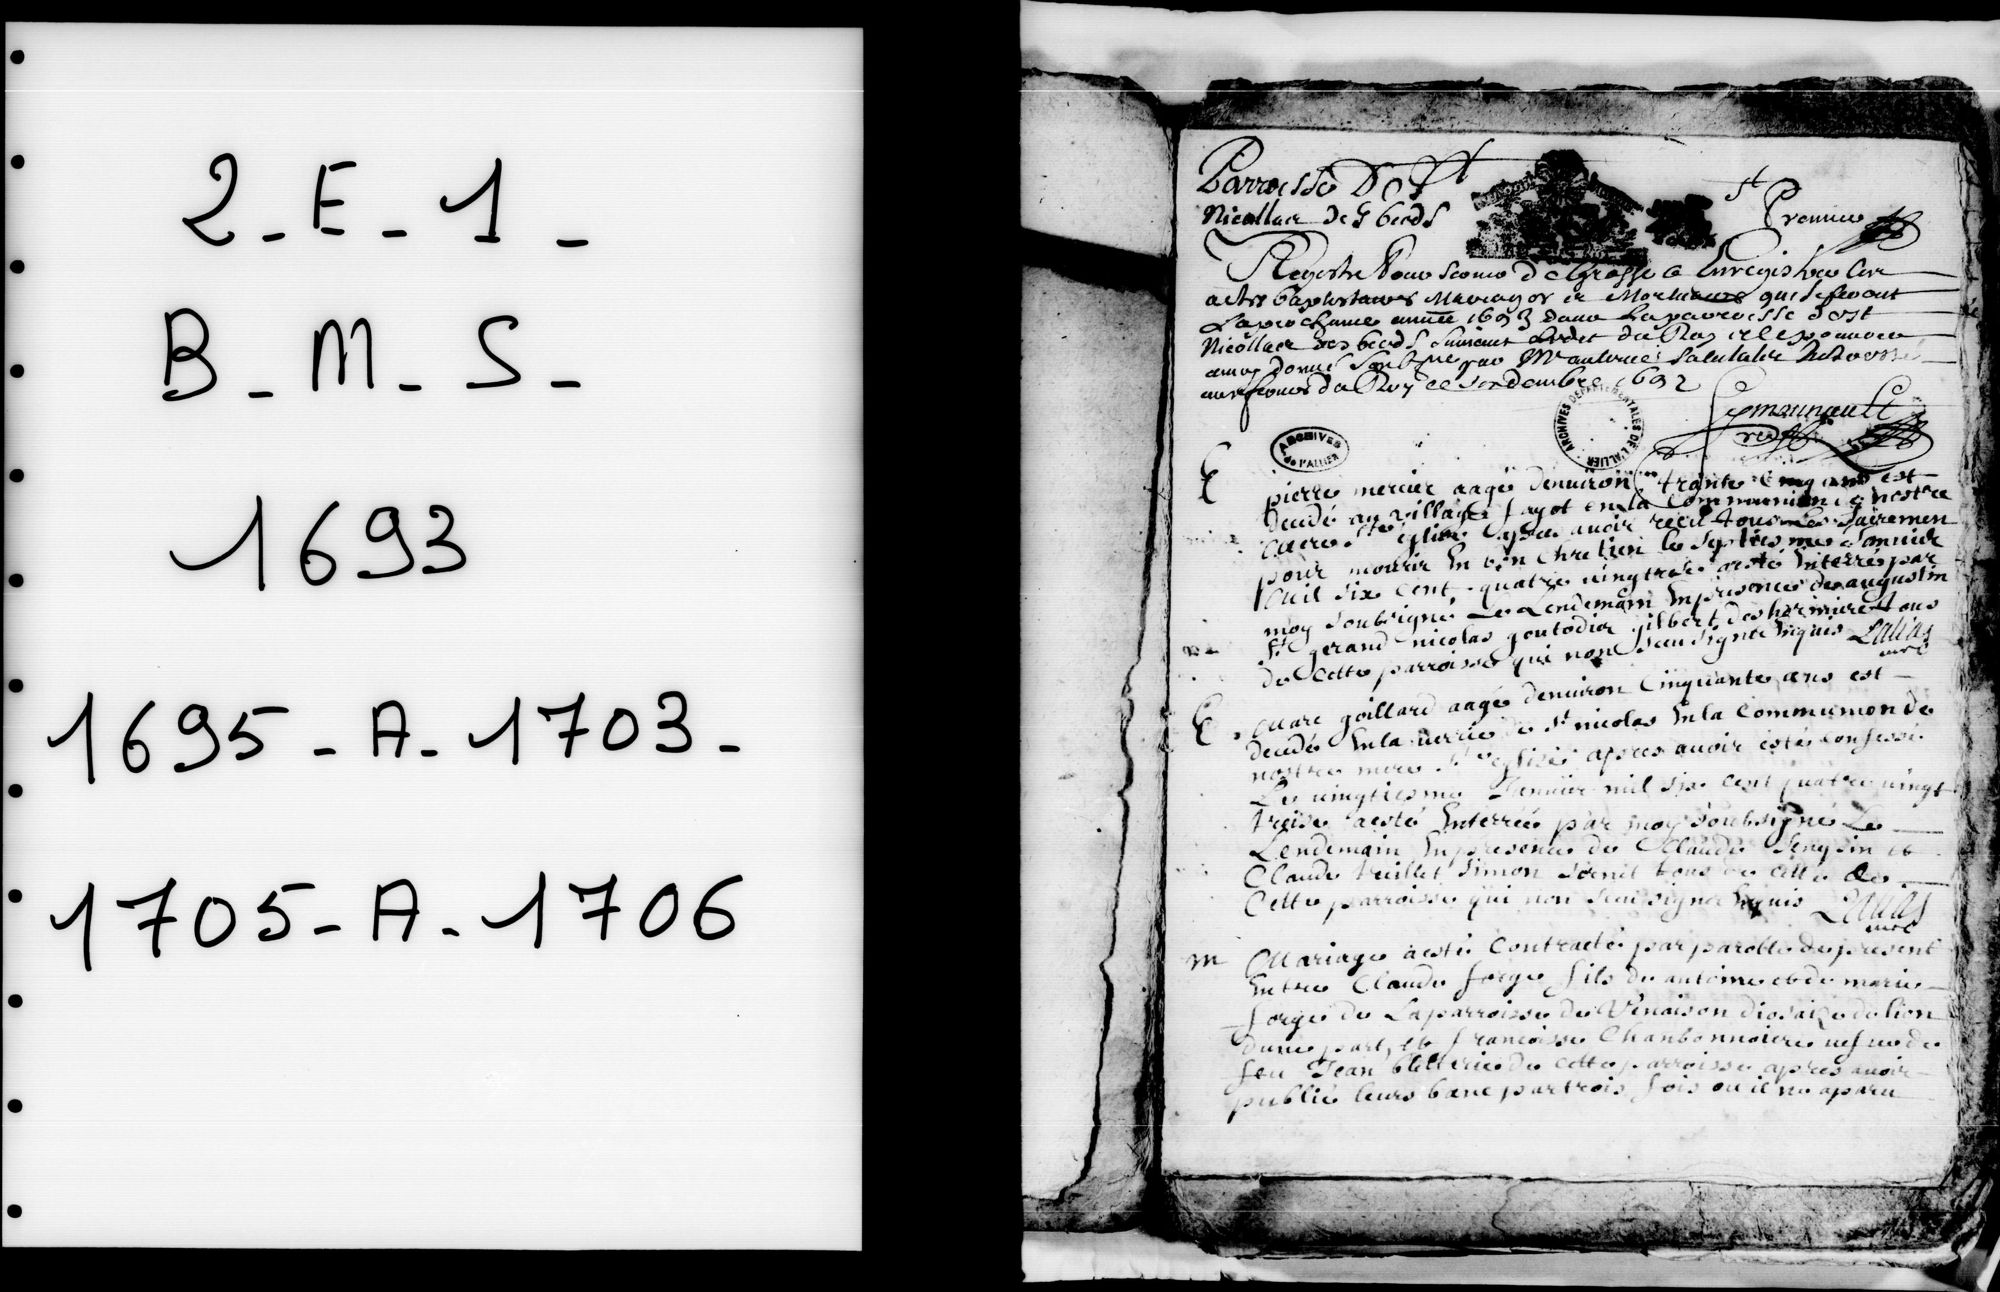 2-E-1-
B-M-S-
1693
1695-A-1703-
1705-A-1706
Parroisse De St
Nicollas des biefs
Premier
Registre Pour servir de Grosse a Enregistrer les
actes baptistaires Mariages et Mortuaires qui se feront
La prochaine année 1693 dans la parroisse de St
Nicollas des biefs suivant Ledit du Roy et le pouvoir
du Roy ce decembre 1692
ARCHIVES DE L'ALLIER
ARCHIVES DEPARTEMENTALES DE L'ALLIER
E
pierre mercier aagé denuiron trante Cinq ans est
decedé au village fayot en la Communion de nostre
mere Ste eglise apres auoir receu tous les sacremen
pour mourir En bon Chretien le septiesme Januier
mil six Cent quatre uingtrese a esté Enterré par
moy soubsigné Le Lendemain En presence de augustin
St gerand nicolas goutodier gilbert deshormiere tous
de Cette parroisse qui non sceu signé Enquis Lalias
curé
E
Marc goillard aagé denuiron Cinquante ans est
decedé En la de St nicolas En la Communion de
nostre mere Ste eglise apres auoir esté Confessé
Le uingtiesme Januier mil six Cent quatre uingt
treise a esté Enterréé par moy soubsigné Le
Lendemain En presence de Claude et
Claude simon tous de Cette de
Cette parroisse qui non sceu signer Enquis Lalias
curé
m
Mariage a esté Contracté par parolle de present
Entre Claude forge fils de antoine et de marie
forge de La parroisse de Diosaize de lion
dune part, et francoise Chanbonniere uefue de
feu Jean de Cette parroisse apres auoir
publié leurs banc par trois fois ou il na aparu